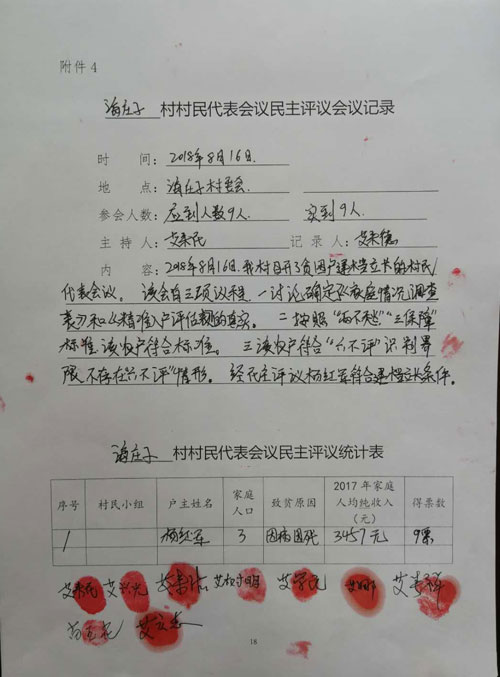 附件 4
庄子 村村民代表会议民主评议会议记录
时 间：2018年8月16日.
地 点：庄子村委会
参会人数：应到人数9人. 实到9人.
主 持 人：艾秉民 记 录 人：艾秉德
内 容：2018年8月16日,我村召开了贫困户建档立卡的村民
代表会议。 该会有三项议程 一讨论确定《家庭情况调查
表》和《精准入户评估表》的真实。 二按照“两不愁”“三保障”
标准 该农户符合标准。 三该农户符合“六不评”识别界
限不存在“六不评”情形。 经民主评议杨红军符合建档立卡条件。
庄子 村村民代表会议民主评议统计表
序号 村民小组 户主姓名 家庭人口 致贫原因 2017 年家庭人均纯收入（元） 得票数
1 杨红军 3 因病 3457元 9票
艾秉民
18